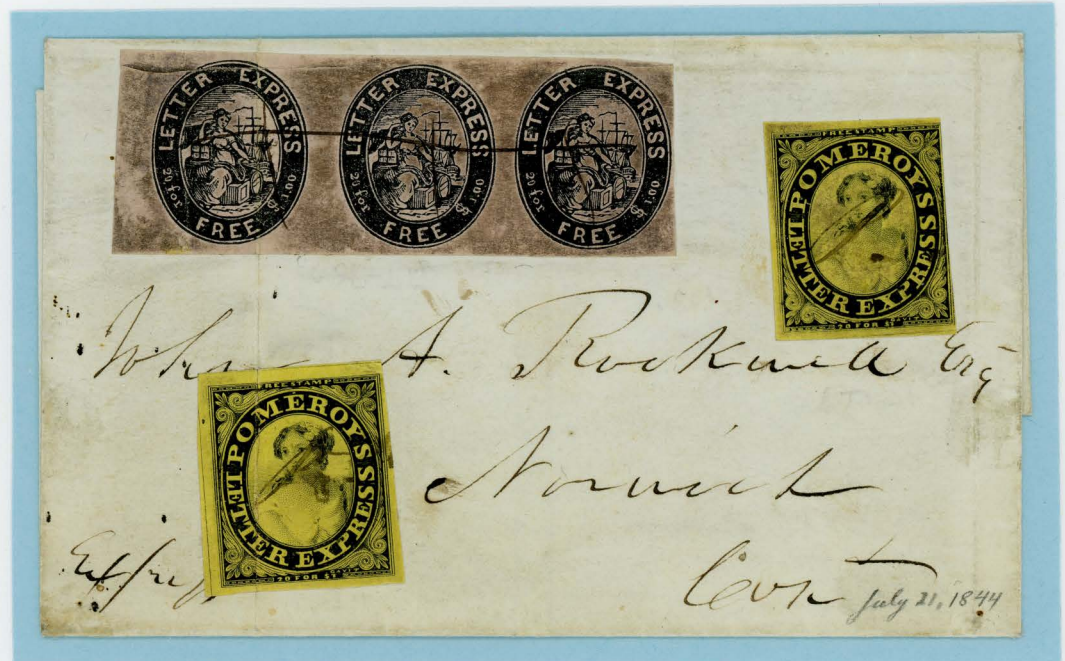 LETTER EXPRESS
20 for $1.00
FREE
LETTER EXPRESS
20 for $1.00
FREE
LETTER EXPRESS
20 for $1.00
FREE
FREE STAMP
POMEROY'S
LETTER EXPRESS
20 FOR $1
John A. Rockwell Esq
FREE STAMP
POMEROY'S
LETTER EXPRESS
20 FOR $1
Norwich
Cont
July 21, 1844